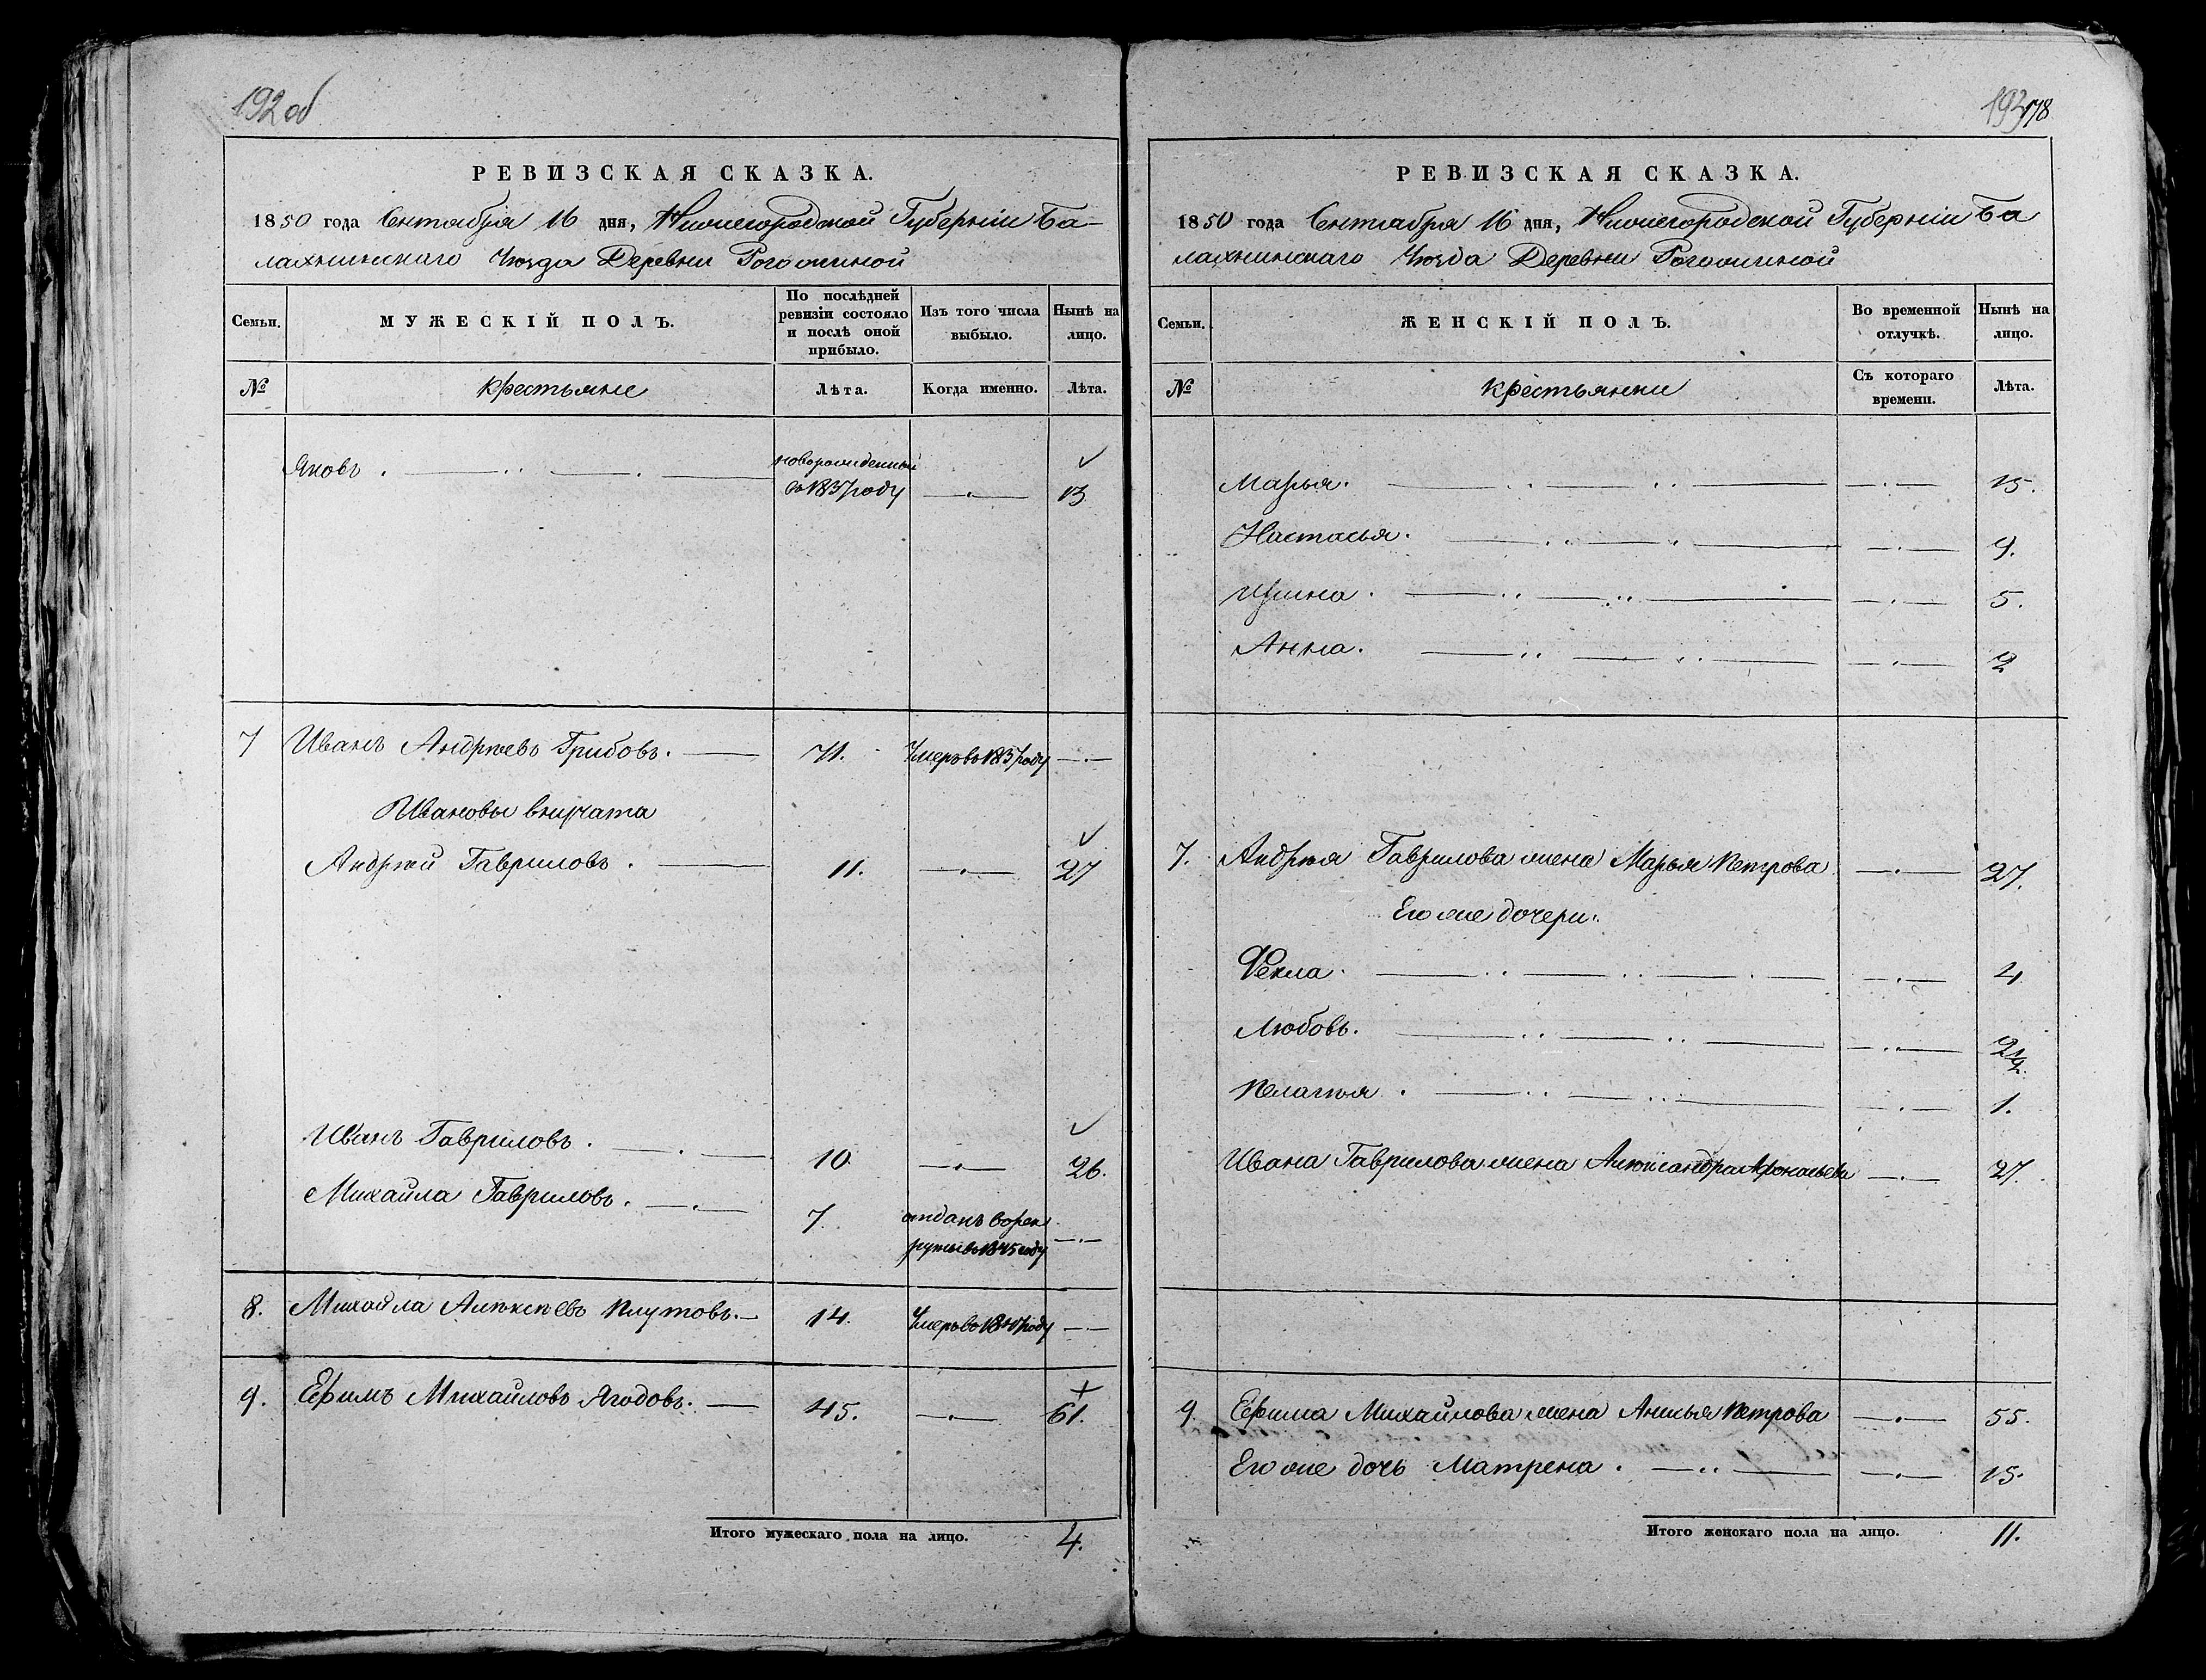 192 об
РЕВИЗСКАЯ СКАЗКА.
1850 года Сентября 16 дня, Нижегородской Губерніи Ба-
лахнинскаго Уѣзда Деревни Рогожиной
Семьи.
МУЖЕСКІЙ ПОЛЪ.
По послѣдней ревизіи состояло и послѣ оной прибыло.
Изъ того числа выбыло.
Нынѣ на лицо.
№ Крестьяне Лѣта. Когда именно. Лѣта.
Яковъ . новорожденный
въ 1837 году 13
7 Иванъ Андрѣевъ Грибовъ. 71. Умеръ въ 1837 году
Ивановы внучата
Андрѣй Гавриловъ . 11. 27
Иванъ Гавриловъ . 10 26.
Михайла Гавриловъ . 7. отданъ в рек
руты въ 1845 году
8. Михайла Алѣксѣевъ Плутовъ. 14. Умеръ въ году
9. Ефимъ Михайловъ Ягодовъ. 45. 61.
Итого мужескаго пола на лицо. 4.
193 178
РЕВИЗСКАЯ СКАЗКА.
1850 года Сентября 16 дня, Нижегородской Губерніи Ба
лахнинскаго Уѣзда Деревни Рогожиной
Семьи.
ЖЕНСКІЙ ПОЛЪ.
Во временной отлучкѣ.
Нынѣ на лицо.
№ Крестьянки Съ котораго времени. Лѣта.
Марья. 15.
Настасья. 9.
Ирина . 5.
Анна. 2
7. Андрѣя Гаврилова жена Марья Петрова 27.
Его же дочери.
Фекла. 4
Любовь. 2½.
Пелагѣя . 1.
Ивана Гаврилова жена Алѣксандра Афонасьева 27.
9 Ефима Михайлова жена Анисья Петрова 55.
Его же дочь Матрена . 15.
Итого женскаго пола на лицо. 11.